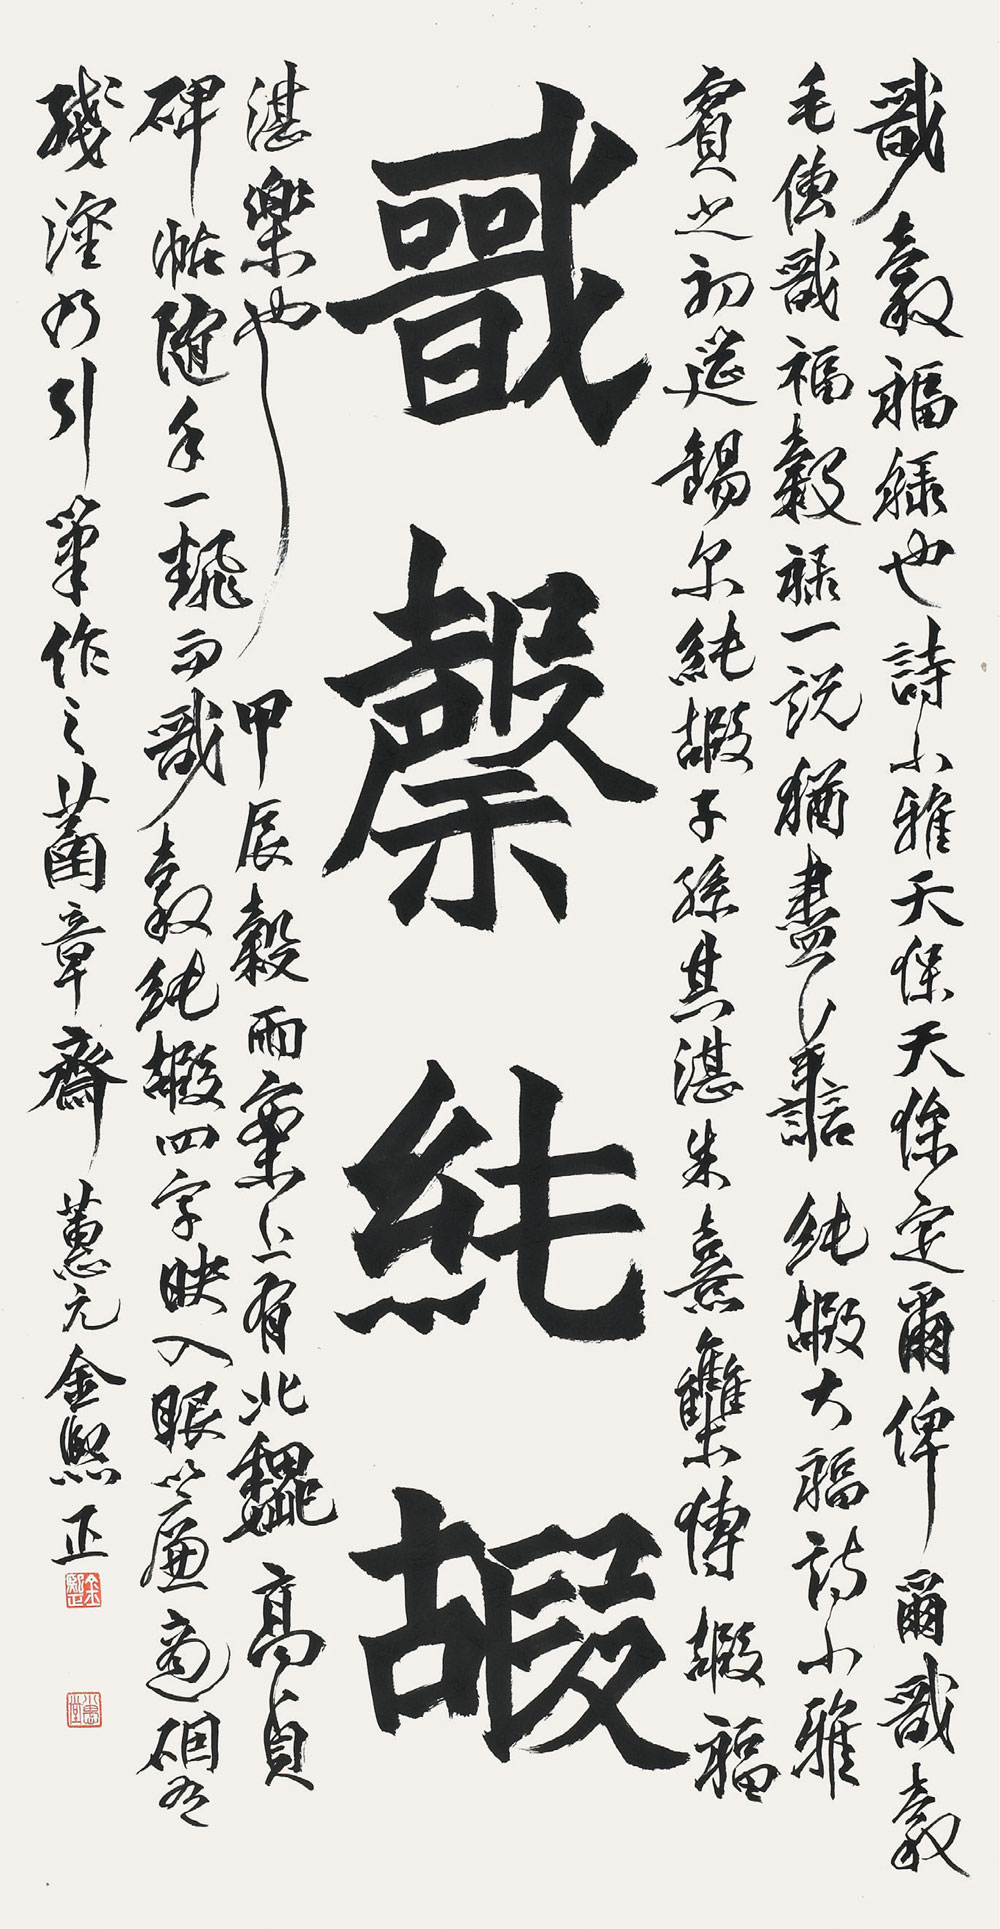 戩穀福祿也詩小雅天保天保定爾俾爾戩穀
毛傳戩福穀祿一說猶盡善 純嘏大福詩小雅
賓之初筵錫尔純嘏子孫其湛朱熹集傳嘏福
戩穀純嘏
湛樂也
甲辰穀雨案上有北魏高貞
碑帖随手一翻而戩穀純嘏四字映入眼簾適硯有
殘瀋乃引筆作之 章齋 蕙元金熙正